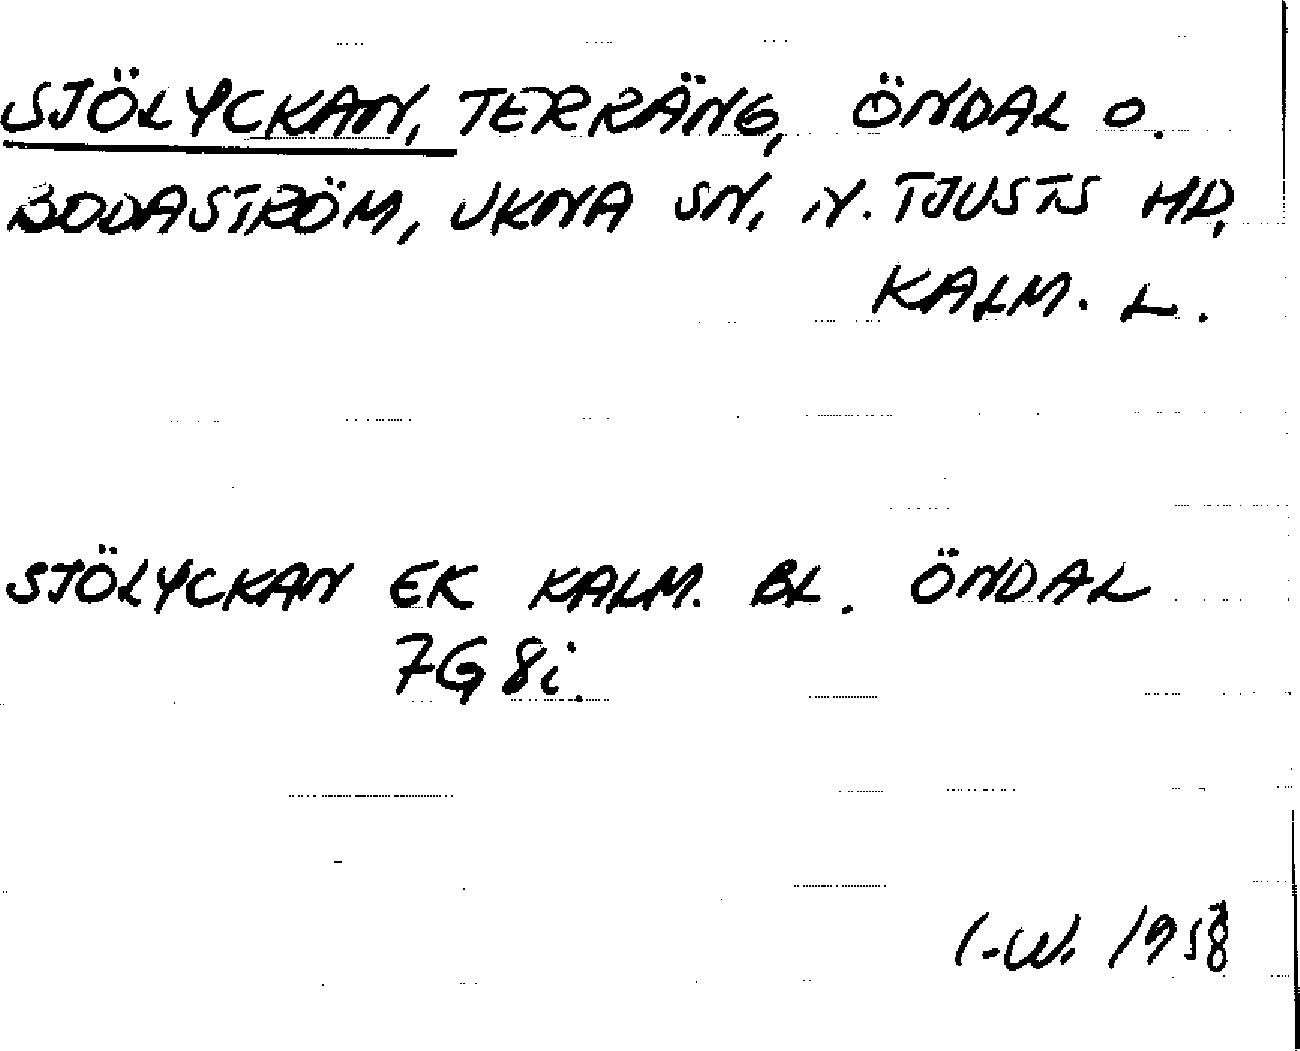 SJÖLYCKAN, TERRÄNG, ÖNDAL O.
BODASTRÖM, UKNA SN, N. TJUSTS HD,
KALM. L.
SJÖLYCKAN EK KALM. BL. ÖNDAL
7G 8i.
1958